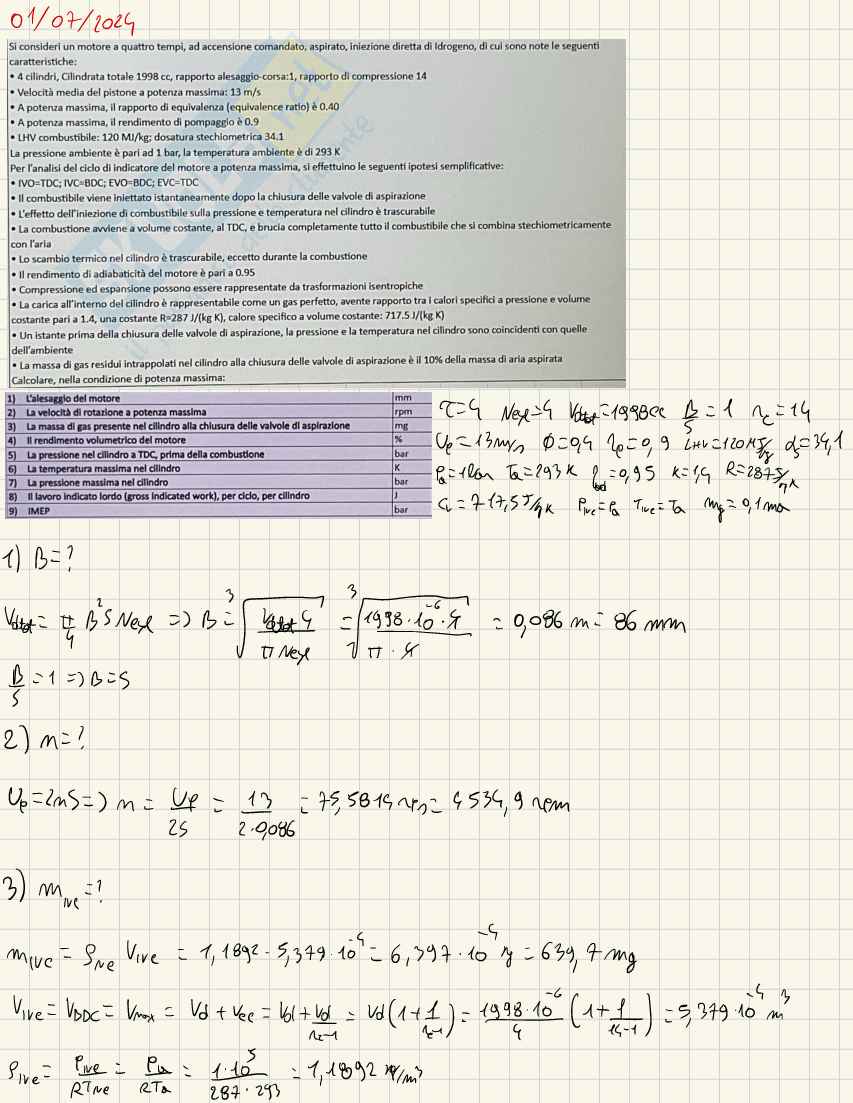 01/07/2024
Si consideri un motore a quattro tempi, ad accensione comandato, aspirato, iniezione diretta di Idrogeno, di cui sono note le seguenti
caratteristiche:
• 4 cilindri, Cilindrata totale 1998 cc, rapporto alesaggio-corsa:1, rapporto di compressione 14
• Velocità media del pistone a potenza massima: 13 m/s
• A potenza massima, il rapporto di equivalenza (equivalence ratio) è 0.40
• A potenza massima, il rendimento di pompaggio è 0.9
• LHV combustibile: 120 MJ/kg; dosatura stechiometrica 34.1
La pressione ambiente è pari ad 1 bar, la temperatura ambiente è di 293 K
Per l'analisi del ciclo di indicatore del motore a potenza massima, si effettuino le seguenti ipotesi semplificative:
• IVO=TDC; IVC=BDC; EVO=BDC; EVC=TDC
• Il combustibile viene iniettato istantaneamente dopo la chiusura delle valvole di aspirazione
• L'effetto dell'iniezione di combustibile sulla pressione e temperatura nel cilindro è trascurabile
• La combustione avviene a volume costante, al TDC, e brucia completamente tutto il combustibile che si combina stechiometricamente
con l'aria
• Lo scambio termico nel cilindro è trascurabile, eccetto durante la combustione
• Il rendimento di adiabaticità del motore è pari a 0.95
• Compressione ed espansione possono essere rappresentate da trasformazioni isentropiche
• La carica all'interno del cilindro è rappresentabile come un gas perfetto, avente rapporto tra i calori specifici a pressione e volume
costante pari a 1.4, una costante R=287 J/(kg K), calore specifico a volume costante: 717.5 J/(kg K)
• Un istante prima della chiusura delle valvole di aspirazione, la pressione e la temperatura nel cilindro sono coincidenti con quelle
dell'ambiente
• La massa di gas residui intrappolati nel cilindro alla chiusura delle valvole di aspirazione è il 10% della massa di aria aspirata
Calcolare, nella condizione di potenza massima:
1) L'alesaggio del motore mm
2) La velocità di rotazione a potenza massima rpm
3) La massa di gas presente nel cilindro alla chiusura delle valvole di aspirazione mg
4) Il rendimento volumetrico del motore %
5) La pressione nel cilindro a TDC, prima della combustione bar
6) La temperatura massima nel cilindro K
7) La pressione massima nel cilindro bar
8) Il lavoro indicato lordo (gross indicated work), per ciclo, per cilindro J
9) IMEP bar
τ=4 Ncyl=4 Vdtot=1998cc B/S=1 rc=14
Up=13m/s Φ=0,4 ηp=0,9 LHV=120MJ/kg ds=34,1
Pa=1bar Ta=293K ηad=0,95 K=1,4 R=287J/kgK
cv=717,5J/kgK Pivc=Pa Tivc=Ta mg=0,1ma
1) B=?
Vdtot = π/4 B² S Ncyl => B = ³√(Vdtot 4 / π Ncyl) = ³√(1998·10⁻⁶·4 / π·4) = 0,086 m = 86 mm
B/S = 1 => B=S
2) n=?
Up=2nS => n = Up/2S = 13/2·0,086 = 75,5814 rps = 4534,9 rpm
3) mivc=?
mivc = ρivc Vivc = 1,1892 · 5,379·10⁻⁴ = 6,397·10⁻⁴ kg = 639,7 mg
Vivc = VBDC = Vmax = Vd + Vcc = Vd + Vd/rc-1 = Vd(1+1/rc-1) = 1998·10⁻⁶/4 (1+1/14-1) = 5,379·10⁻⁴ m³
ρivc = Pivc/RTivc = Pa/RTa = 1·10⁵/287·293 = 1,1892 kg/m³